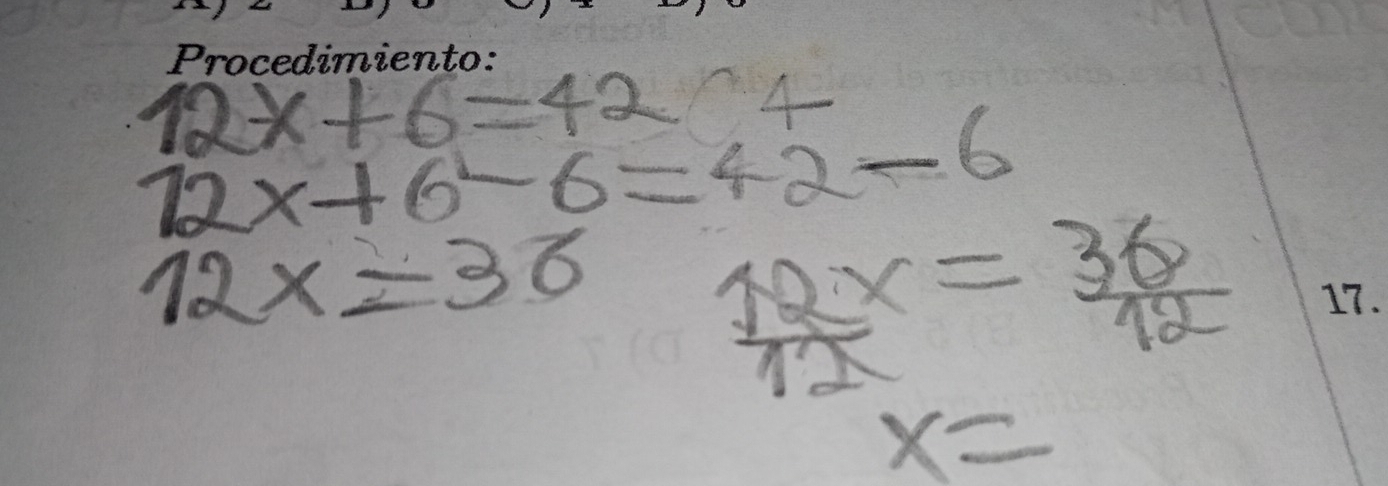 A) 2 B) 3 C) 4 D) 6
Procedimiento:
12x+6=42 +
12x+6-6=42-6
12x=36
12x/12 = 36/12
x=
17.